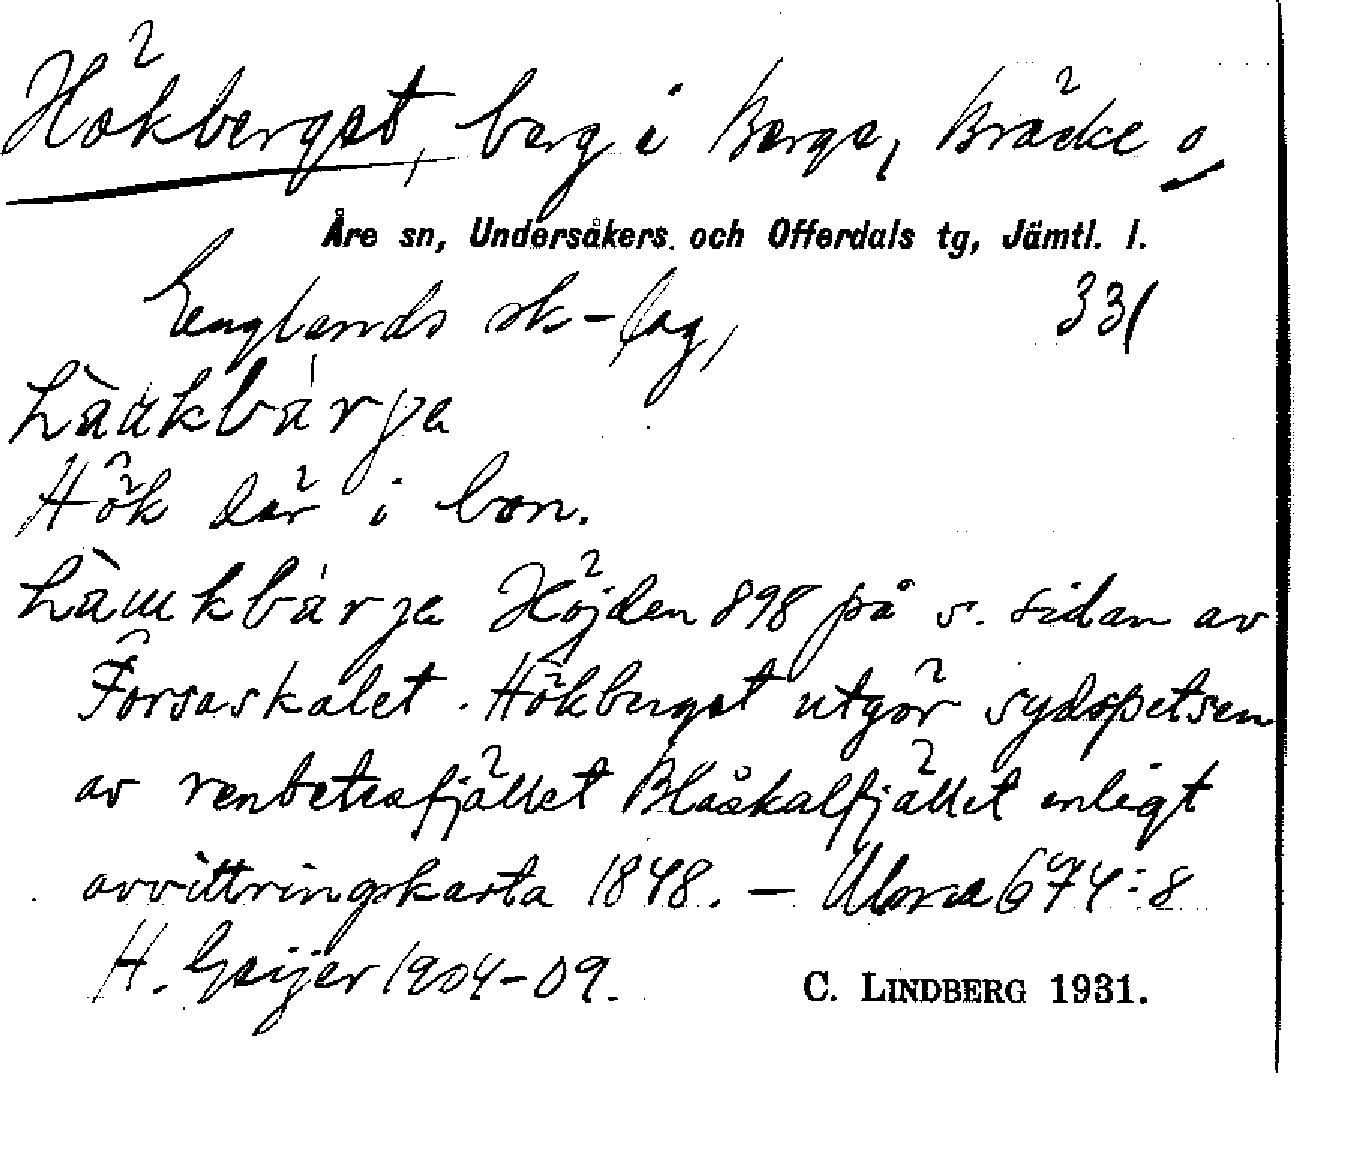 Hökberget, berg i Berge, Bräcke o
Åre sn, Undersåkers. och Offerdals tg, Jämtl. l.
Englands sk-lag, 331
Hök där i bon.
Höjden 898 på s. sidan av
Forsaskalet. Hökberget utgör sydspetsen
av renbetesfjället Blåskalfjället enligt
avvittringskarta 1848. – Ulma 674:8
H. Geijer 1904-09. C. LINDBERG 1931.